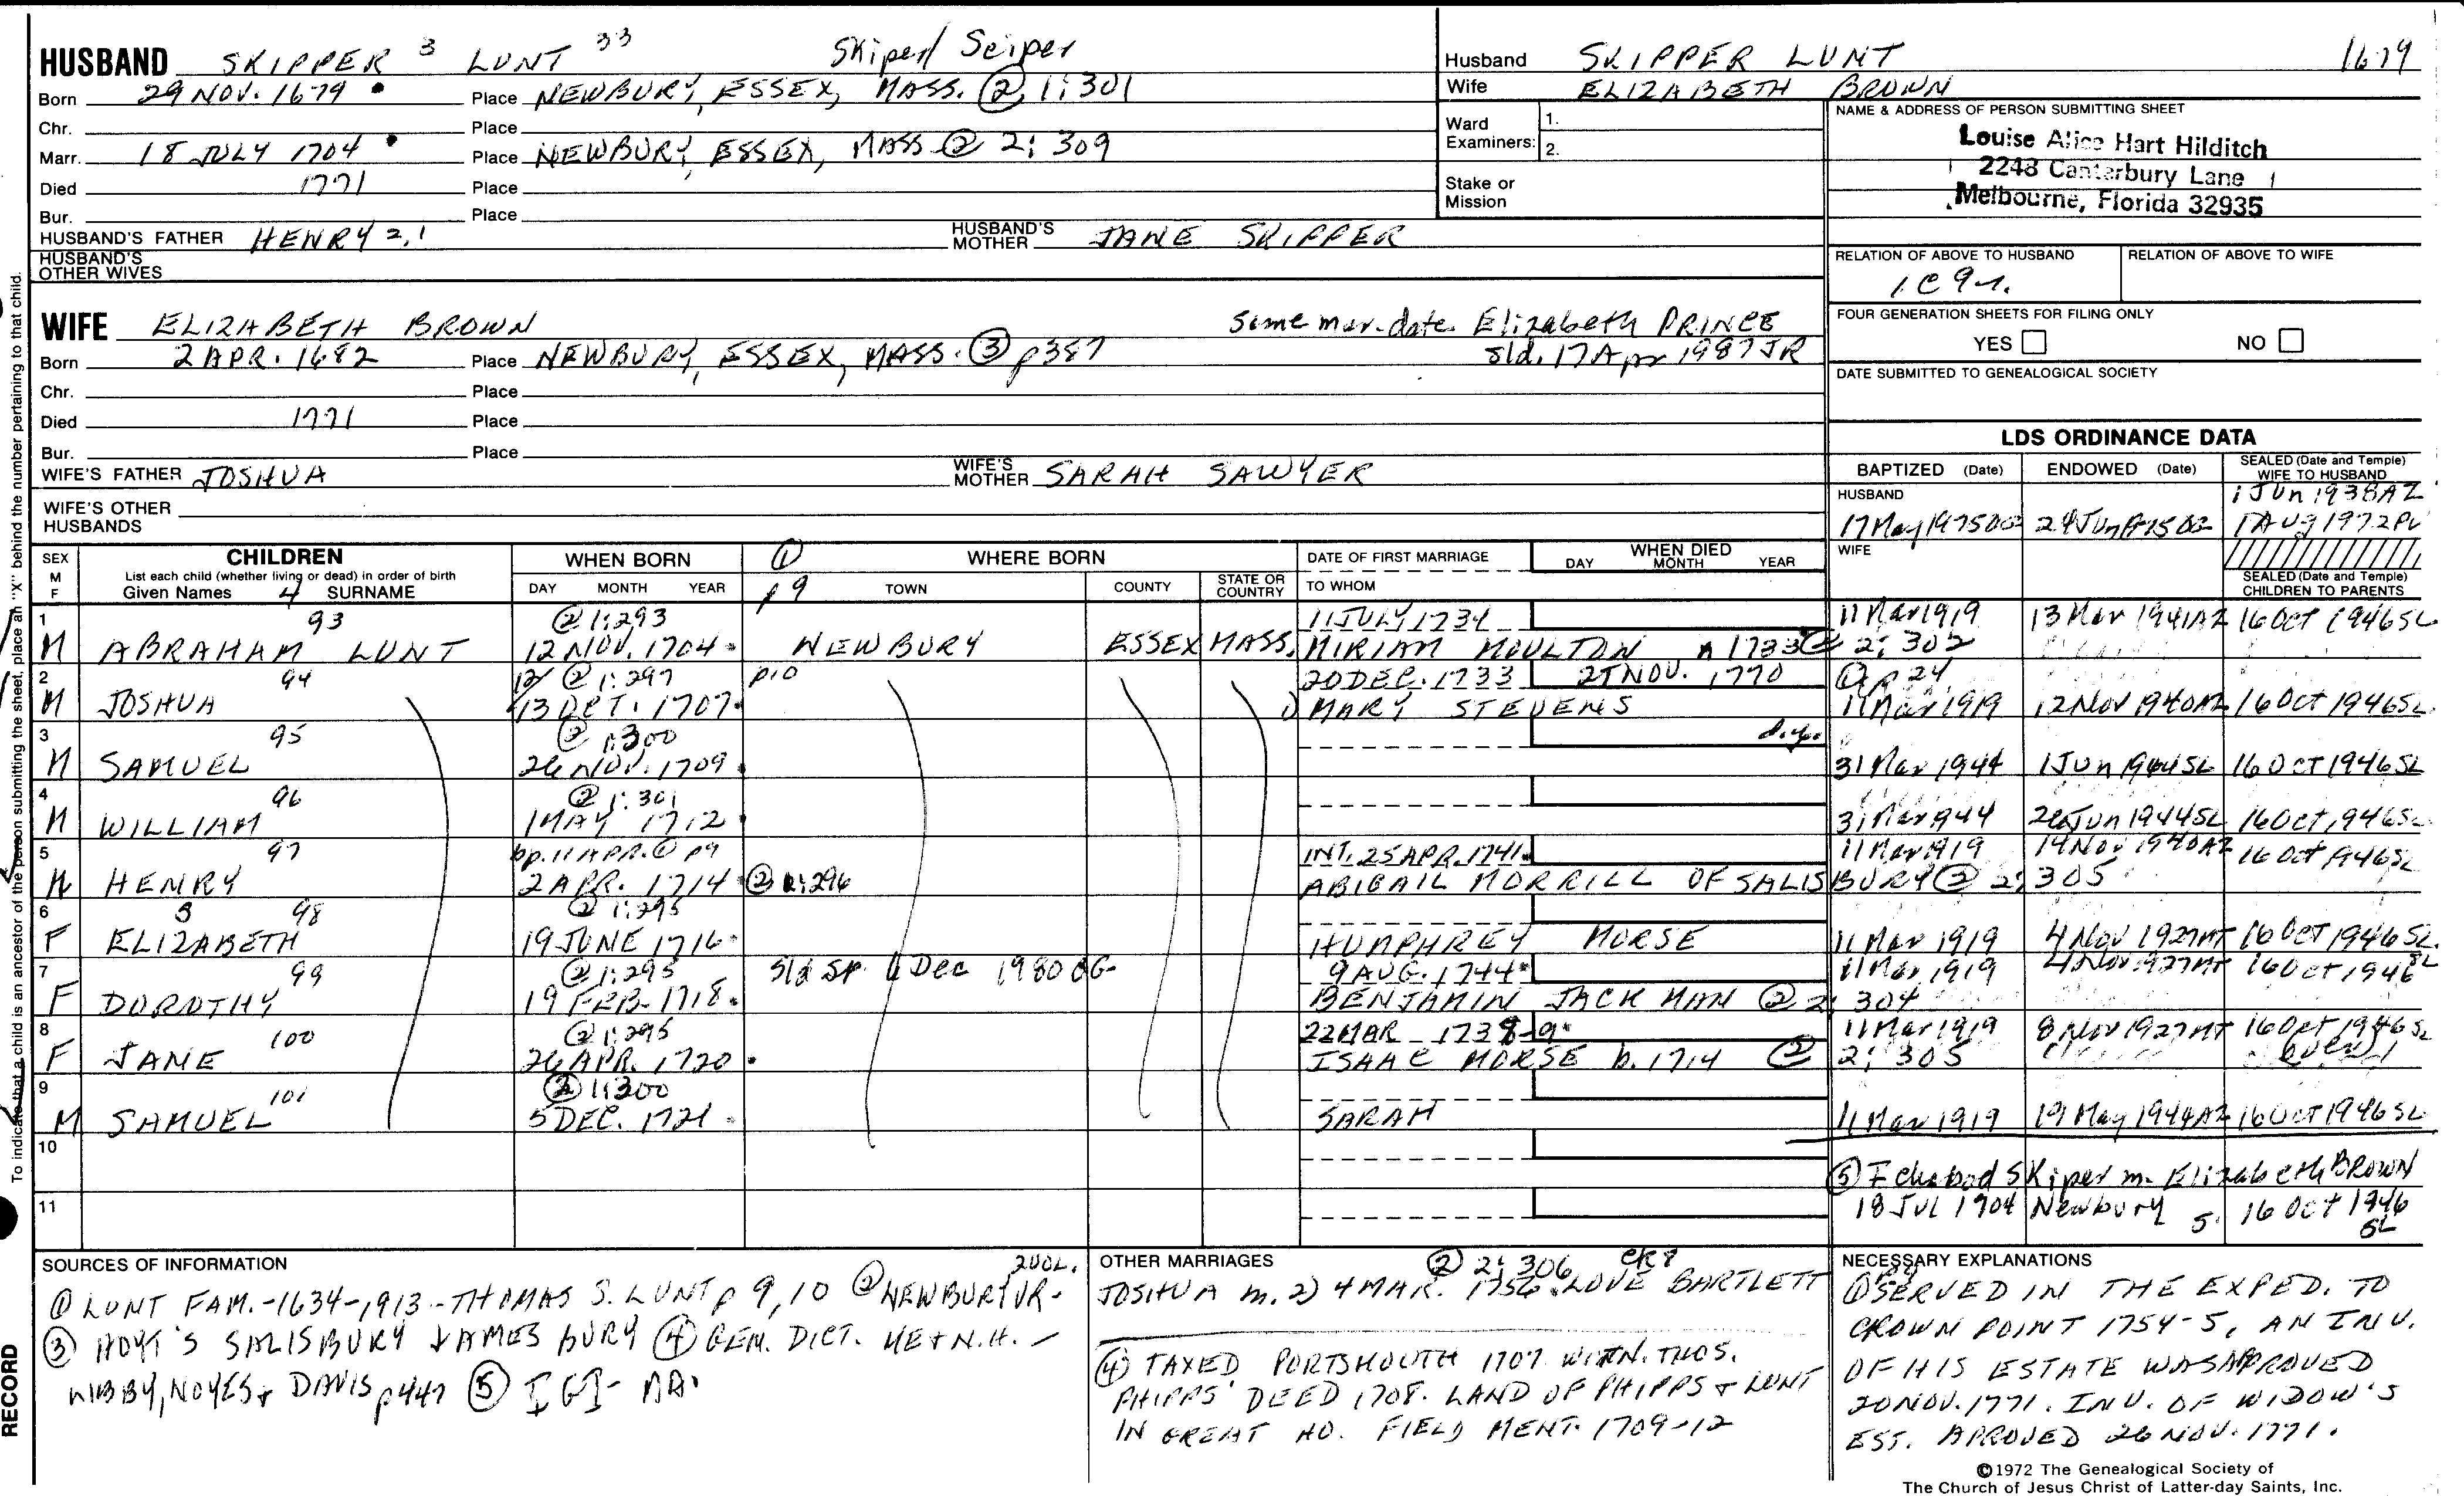 HUSBAND SKIPPER 3 LUNT 33 Skiper/ Sciper
Born 29 NOV. 1679 Place NEWBURY, ESSEX, MASS. ② 1:301
Chr. Place
Marr. 18 JULY 1704 Place NEWBURY, ESSEX, MASS ② 2:309
Died 1771 Place
Bur. Place
HUSBAND'S FATHER HENRY 2,1 HUSBAND'S MOTHER JANE SKIPPER
HUSBAND'S OTHER WIVES
WIFE ELIZABETH BROWN Same mar. date Elizabeth PRINCE
Born 2 APR. 1682 Place NEWBURY, ESSEX, MASS. ③ p387 sld. 17 Apr 1987 JR
Chr. Place
Died 1771 Place
Bur. Place
WIFE'S FATHER JOSHUA WIFE'S MOTHER SARAH SAWYER
WIFE'S OTHER HUSBANDS
Husband SKIPPER LUNT 1679
Wife ELIZABETH BROWN
Ward Examiners: 1. 2.
Stake or Mission
NAME & ADDRESS OF PERSON SUBMITTING SHEET
Louise Alice Hart Hilditch
2248 Canterbury Lane
Melbourne, Florida 32935
RELATION OF ABOVE TO HUSBAND RELATION OF ABOVE TO WIFE
1C 9r.
FOUR GENERATION SHEETS FOR FILING ONLY
YES NO
DATE SUBMITTED TO GENEALOGICAL SOCIETY
LDS ORDINANCE DATA
BAPTIZED (Date) ENDOWED (Date) SEALED (Date and Temple) WIFE TO HUSBAND
HUSBAND 1 Jun 1938 AZ
17 May 1975 24 Jun 1 Aug 1972 PV
WIFE
SEALED (Date and Temple) CHILDREN TO PARENTS
SEX M F CHILDREN WHEN BORN ① WHERE BORN DATE OF FIRST MARRIAGE WHEN DIED
List each child (whether living or dead) in order of birth DAY MONTH YEAR p9 TOWN COUNTY STATE OR COUNTRY TO WHOM DAY MONTH YEAR
Given Names 4 SURNAME
1 93 ② 1:293 11 JULY 1734 11 Mar 1919 13 Mar 1941 AZ 16 Oct 1946 SL
M ABRAHAM LUNT 12 NOV. 1704 NEWBURY ESSEX MASS. MIRIAM MOULTON n 1733 ② 2:302
2 94 12/ ② 1:297 p10 20 DEC. 1733 27 NOV. 1770 ① p 24
M JOSHUA 13 OCT. 1707 1) MARY STEVENS 11 Mar 1919 12 Nov 1940 AZ 16 Oct 1946 SL
3 95 ② 1:300 d.y.
M SAMUEL 26 NOV. 1709 31 Mar 1944 1 Jun 1944 SL 16 Oct 1946 SL
4 96 ② 1:301
M WILLIAM 1 MAY 1712 31 Mar 1944 Jun 1944 SL 16 Oct 1946 SL
5 97 bp. 11 APR. ① p9 INT. 25 APR. 1741 11 Mar 1919 14 Nov 1940 AZ 16 Oct 1946 SL
M HENRY 2 APR. 1714 ② 1:296 ABIGAIL MORRILL OF SALISBURY ② 2:305
6 S 98 ② 1:295
F ELIZABETH 19 JUNE 1716 HUMPHREY MORSE 11 Mar 1919 4 Nov 1927 MT 16 Oct 1946 SL
7 99 ② 1:295 Sld Sp. 6 Dec 1980 OG 9 AUG. 1744 11 Mar 1919 4 Nov 1927 MT 16 Oct 1946 SL
F DOROTHY 19 FEB. 1718 BENJAMIN JACKMAN ② 2:304
8 100 ② 1:295 22 MAR 1738-9 11 Mar 1919 8 Nov 1927 MT 16 Oct 1946 SL
F JANE 26 APR. 1720 ISAAC MORSE b. 1714 ② 2:305
9 101 ② 1:300
M SAMUEL 5 DEC. 1721 SARAH 11 Mar 1919 19 May 1944 AZ 16 Oct 1946 SL
10
⑤ Ichabod Skiper m. Elizabeth BROWN
11 18 Jul 1704 Newbury S. 16 Oct 1946 SL
To indicate that a child is an ancestor of the person submitting the sheet, place an "X" behind the number pertaining to that child.
RECORD
SOURCES OF INFORMATION 2 VOL.
① LUNT FAM. -1634-1913 -THOMAS S. LUNT p 9,10 ② NEWBURY VR-
③ HOYT'S SALISBURY & AMESBURY ④ GEN. DICT. ME & N.H. -
LIBBY, NOYES & DAVIS p447 ⑤ IGI- MA.
OTHER MARRIAGES ② 2:306
JOSHUA m. 2) 4 MAR. 1756 LOVE BARTLETT
④ TAXED PORTSMOUTH 1707. WITN. THOS.
PHIPPS' DEED 1708. LAND OF PHIPPS & LUNT
IN GREAT HO. FIELD MENT. 1709-12
NECESSARY EXPLANATIONS
① SERVED IN THE EXPED. TO
CROWN POINT 1754-5, AN INV.
OF HIS ESTATE WAS APPROVED
20 NOV. 1771. INV. OF WIDOW'S
EST. APROVED 26 NOV. 1771.
©1972 The Genealogical Society of
The Church of Jesus Christ of Latter-day Saints, Inc.